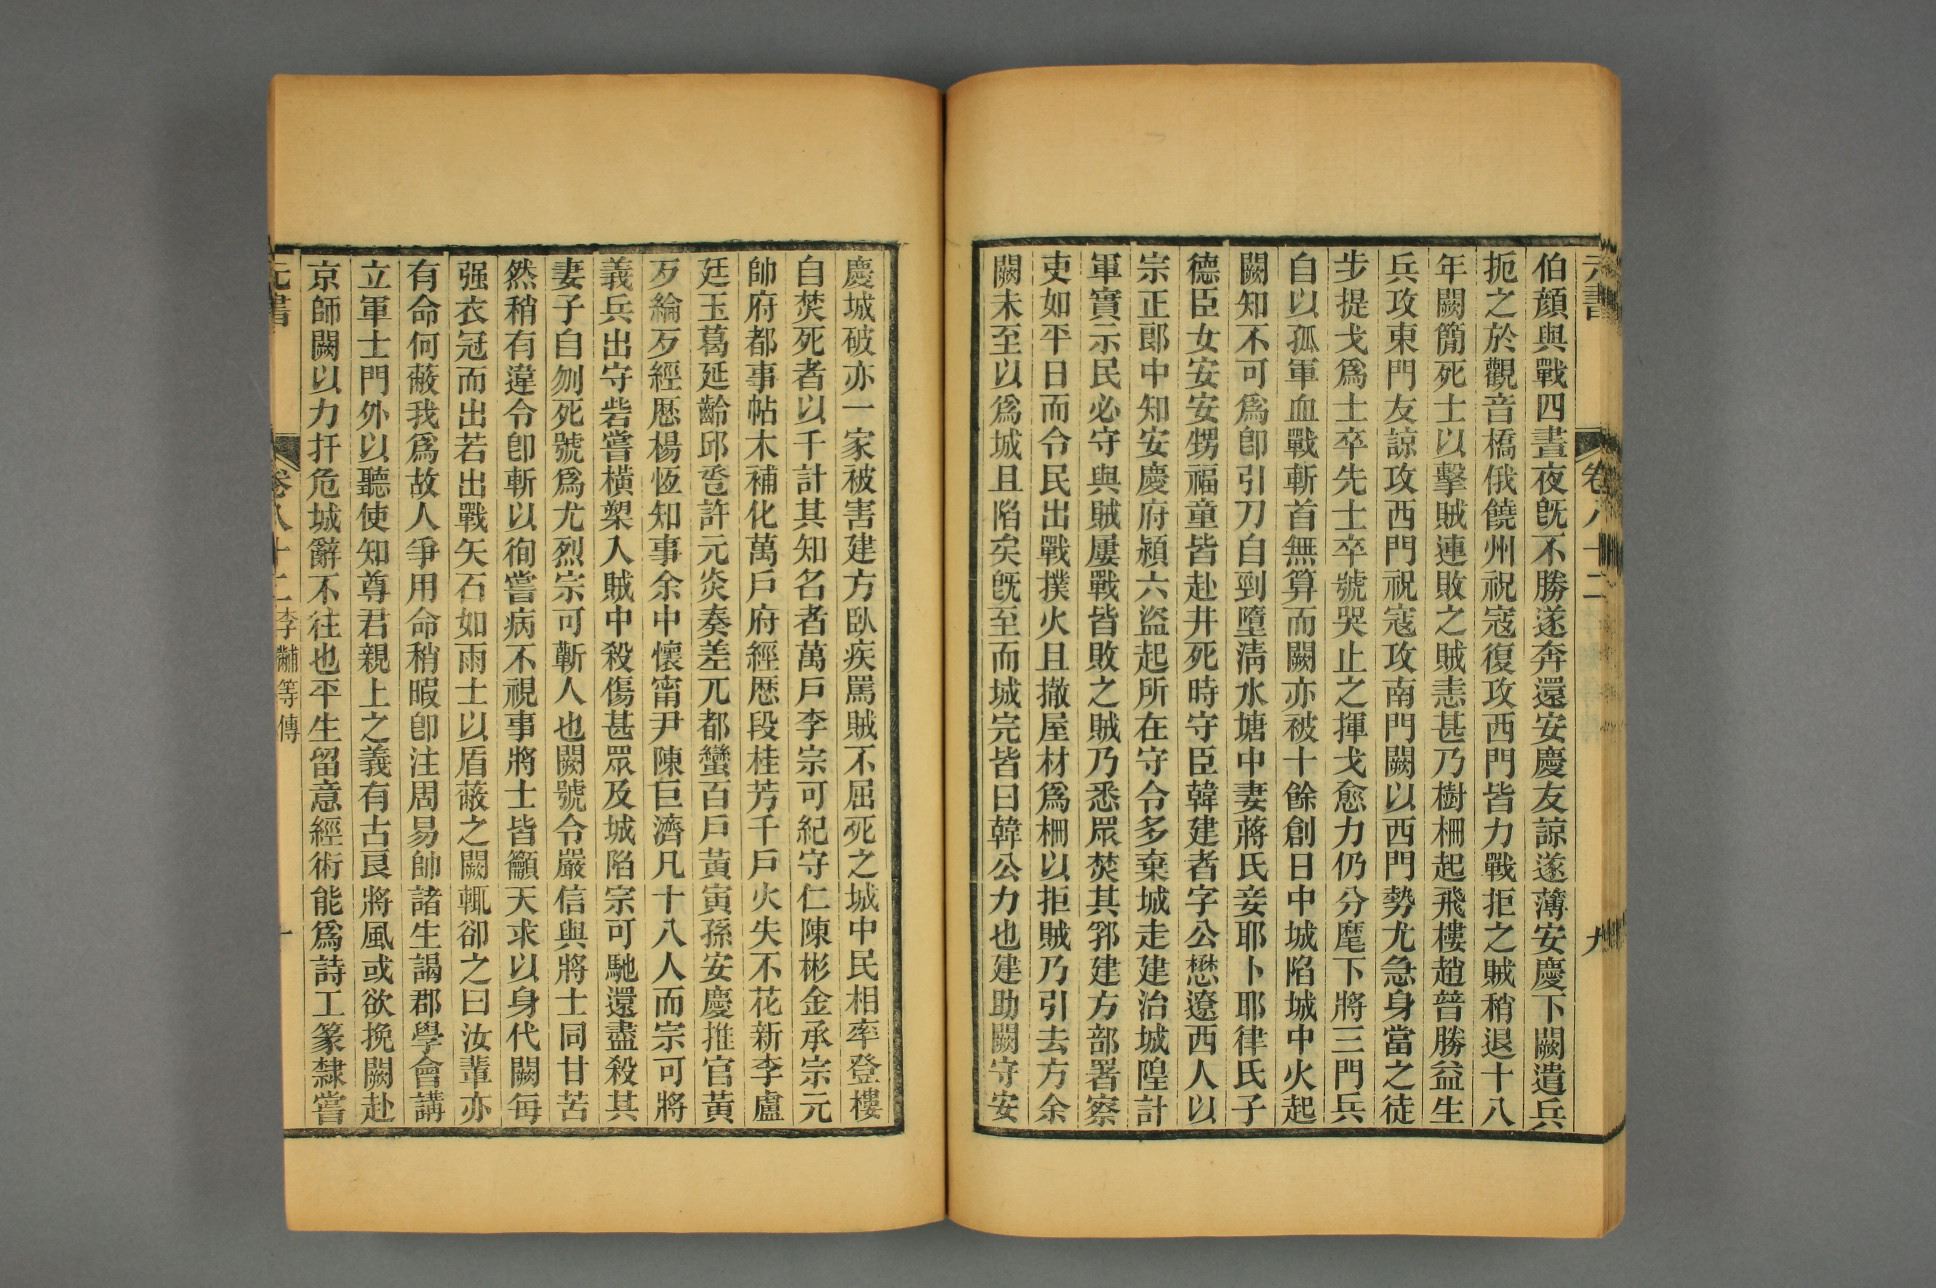 元書
卷八十二
九
伯顏與戰四晝夜旣不勝遂奔還安慶友諒遂薄安慶下闕遣兵
扼之於觀音橋俄饒州祝寇復攻西門皆力戰拒之賊稍退十八
年闕簡死士以擊賊連敗之賊恚甚乃樹柵起飛樓趙普勝益生
兵攻東門友諒攻西門祝寇攻南門闕以西門勢尤急身當之徒
步提戈爲士卒先士卒號哭止之揮戈愈力仍分麾下將三門兵
自以孤軍血戰斬首無算而闕亦被十餘創日中城陷城中火起
闕知不可爲卽引刀自剄墮淸水塘中妻蔣氏妾耶卜耶律氏子
德臣女安安甥福童皆赴井死時守臣韓建者字公懋遼西人以
宗正郞中知安慶府潁六盜起所在守令多棄城走建治城隍計
軍實示民必守與賊屢戰皆敗之賊乃悉眾焚其郛建方部署察
吏如平日而令民出戰撲火且撤屋材爲柵以拒賊乃引去方余
闕未至以爲城且陷矣旣至而城完皆曰韓公力也建助闕守安
慶城破亦一家被害建方臥疾罵賊不屈死之城中民相率登樓
自焚死者以千計其知名者萬戶李宗可紀守仁陳彬金承宗元
帥府都事帖木補化萬戶府經歷段桂芳千戶火失不花新李盧
廷玉葛延齡邱卺許元炎奏差兀都蠻百戶黃寅孫安慶推官黃
歹綸歹經歷楊恆知事余中懷甯尹陳巨濟凡十八人而宗可將
義兵出守砦嘗橫槊入賊中殺傷甚眾及城陷宗可馳還盡殺其
妻子自刎死號爲尤烈宗可蘄人也闕號令嚴信與將士同甘苦
然稍有違令卽斬以徇嘗病不視事將士皆籲天求以身代闕每
强衣冠而出若出戰矢石如雨士以盾蔽之闕輒卻之曰汝輩亦
有命何蔽我爲故人爭用命稍暇卽注周易帥諸生謁郡學會講
立軍士門外以聽使知尊君親上之義有古良將風或欲挽闕赴
京師闕以力扞危城辭不往也平生留意經術能爲詩工篆隸嘗
元書
卷八十二
李黼等傳